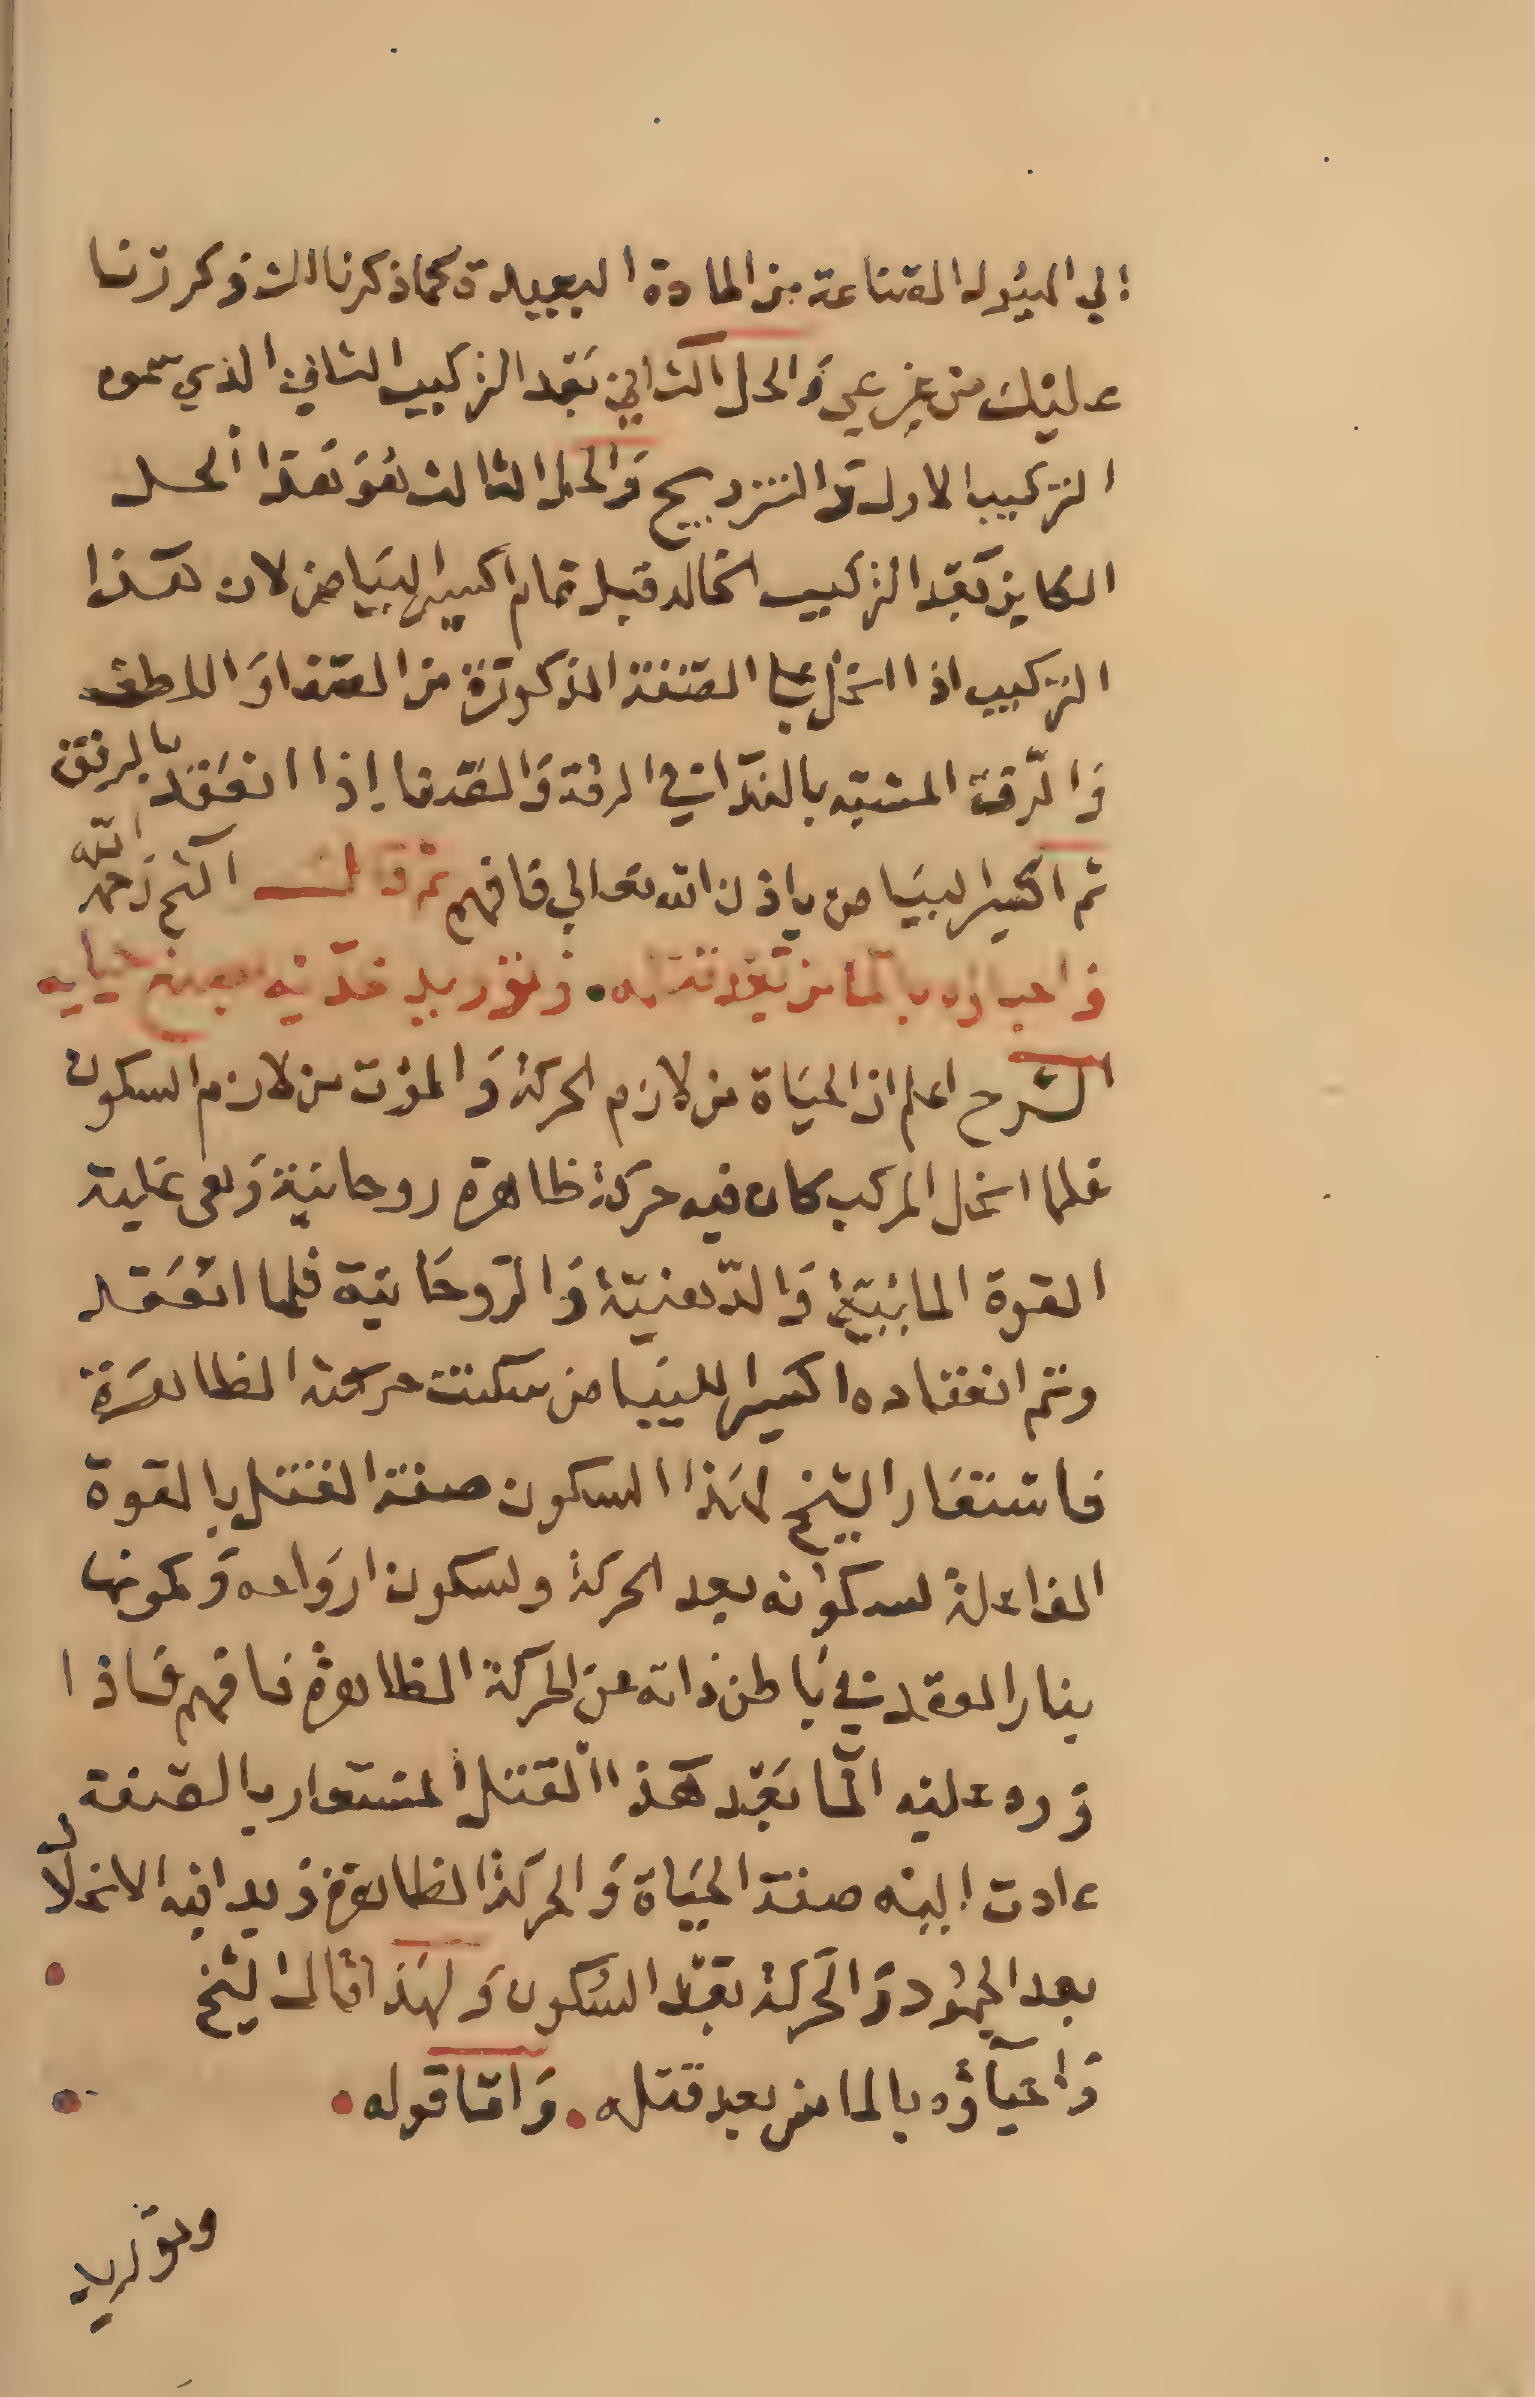 الي الهيولا الصناعة من المادة البعيدة كما ذكرنا الك وكررنا
عليك من غير عي والحل الثاني بعد التركيب الثاني الذي سموه
التركيب الاول والتزويج والحل الثالث هو هذا الحل
الكاين بعد التركيب الثالث قبل تمام اكسير البياض لان هذا
التركيب اذا انحل علي الصفة المذكورة من الصفا واللطف
والرقة المشبه بالغدا في الرقة والصفا اذا انعقد بالرفق
تم اكسير البياض باذن الله تعالي فافهم ثم قال الشيخ رحمه الله
واحياؤه بالما من بعد قتله • وتوريد خديه
الشرح اعلم ان الحياة من لازم الحركة والموت من لازم السكون
فلما انحل المركب كان فيه حركة ظاهرة روحانية وهي غلبة
القوة المائية والدهنية والروحانية فلما انعقد
وتم انعقاده اكسير للبياض سكنت حركته الظاهرة
فاستعار الشيخ لهذا السكون صفة القتل بالقوة
الفاعلة لسكونه بعد الحركة ولسكون ارواحه وكمونها
بنار العقد في باطن ذاته عن الحركة الظاهرة فافهم فاذا
ورد عليه الما بعد هذا القتل المستعار بالصفة
عادت اليه صفة الحياة والحركة الظاهرة وبدا فيه الانحلال
بعد الجمود والحركة بعد السكون ولهذا قال الشيخ
واحياؤه بالما من بعد قتله • واما قوله •
وتوريد